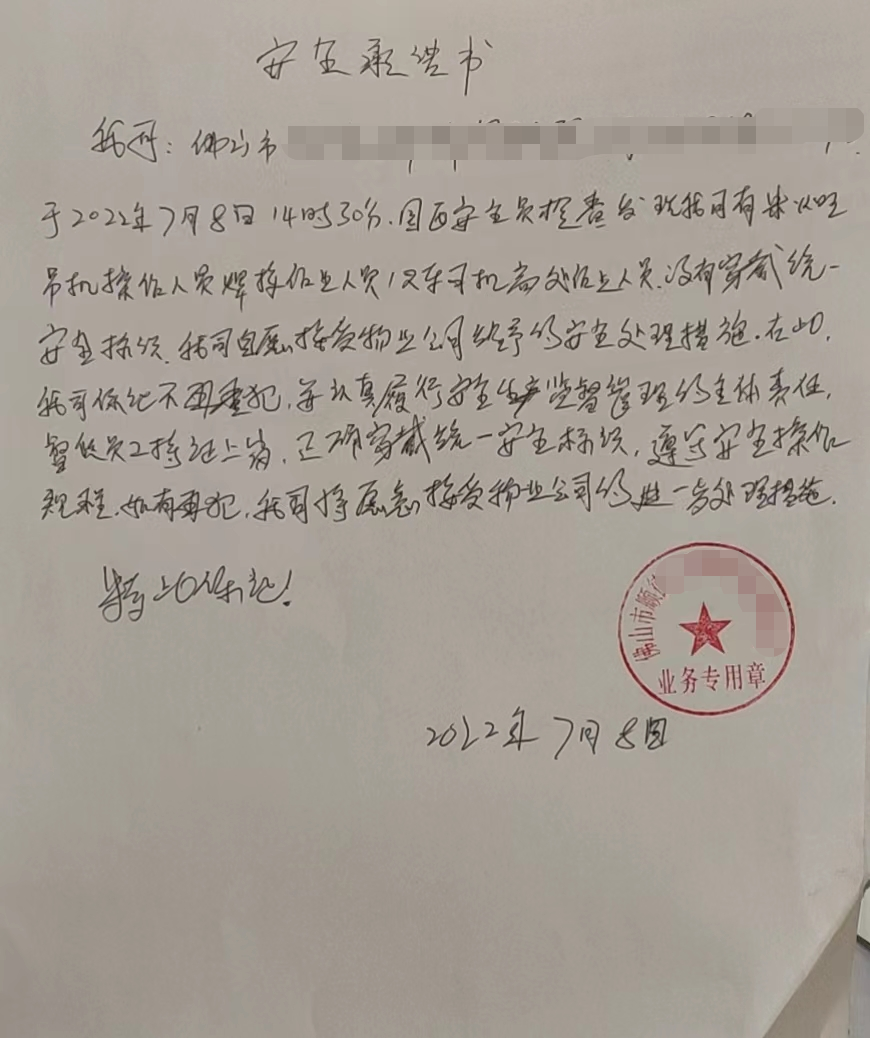 安全承诺书
我司：佛山市
于2022年7月8日14时30分.园区安全员检查发现我司有
吊机操作人员焊接作业人员 叉车司机高处作业人员.没有穿戴统一
安全标识.我司自愿接受物业公司给予的安全处理措施.在此,
我司保证不再重犯,并认真履行安全生产监督管理的主体责任,
督促员工持证上岗,正确穿戴统一安全标识,遵守安全操作
规程.如有再犯,我司将愿意接受物业公司的进一步处理措施.
特此保证!
佛山市顺
业务专用章
2022年7月8日